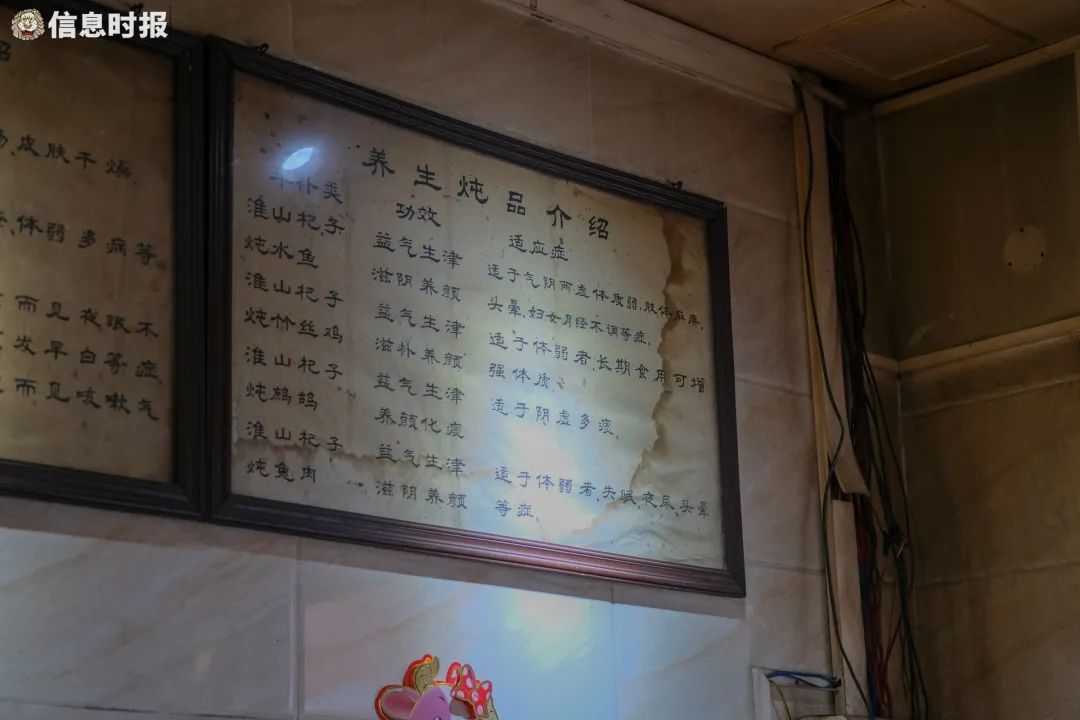 信息时报
绍
皮肤干燥、
体弱多病等
而见夜眠不
发早白等症
而见咳嗽气
养生炖品介绍
补类 功效 适应症
淮山杞子 益气生津 适于气阴两虚体质弱、肢体麻痹、
炖水鱼 滋阴养颜 头晕、妇女月经不调等症、
淮山杞子 益气生津 适于体弱者长期食用可增
炖竹丝鸡 滋补养颜 强体质、
淮山杞子 益气生津 适于阴虚多痰、
炖鹧鸪 养颜化痰
淮山杞子 益气生津 适于体弱者、失眠、夜尿、头晕
炖兔肉 滋阴养颜 等症、